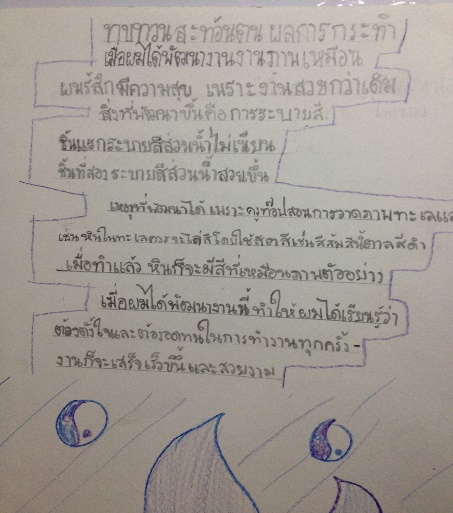 ทบทวนสะท้อนตน ผลการกระทำ
เมื่อผมได้พัฒนางานงานภาพเหมือน
ผมรู้สึกมีความสุข เพราะงานสวยกว่าเดิม
สิ่งที่พัฒนาขึ้นคือการระบายสี
ชิ้นแรกระบายสีส่วนน้ำไม่เนียน
ชิ้นที่สองระบายสีส่วนน้ำสวยขึ้น
เหตุที่พัฒนาได้เพราะครูท๊อปสอนการวาดภาพทะเลและ
เช่นหินในทะเลควรจะไล่สีโดยใช้สีเช่นสีส้มสีน้ำตาลสีดำ
เมื่อทำแล้ว หินก็จะมีสีที่เหมือนภาพตัวอย่าง
เมื่อผมได้พัฒนางานนี้ทำให้ผมได้เรียนรู้ว่า
ต้องตั้งใจและต้องอดทนในการทำงานทุกครั้ง -
งานก็จะเสร็จเร็วขึ้นและสวยงาม